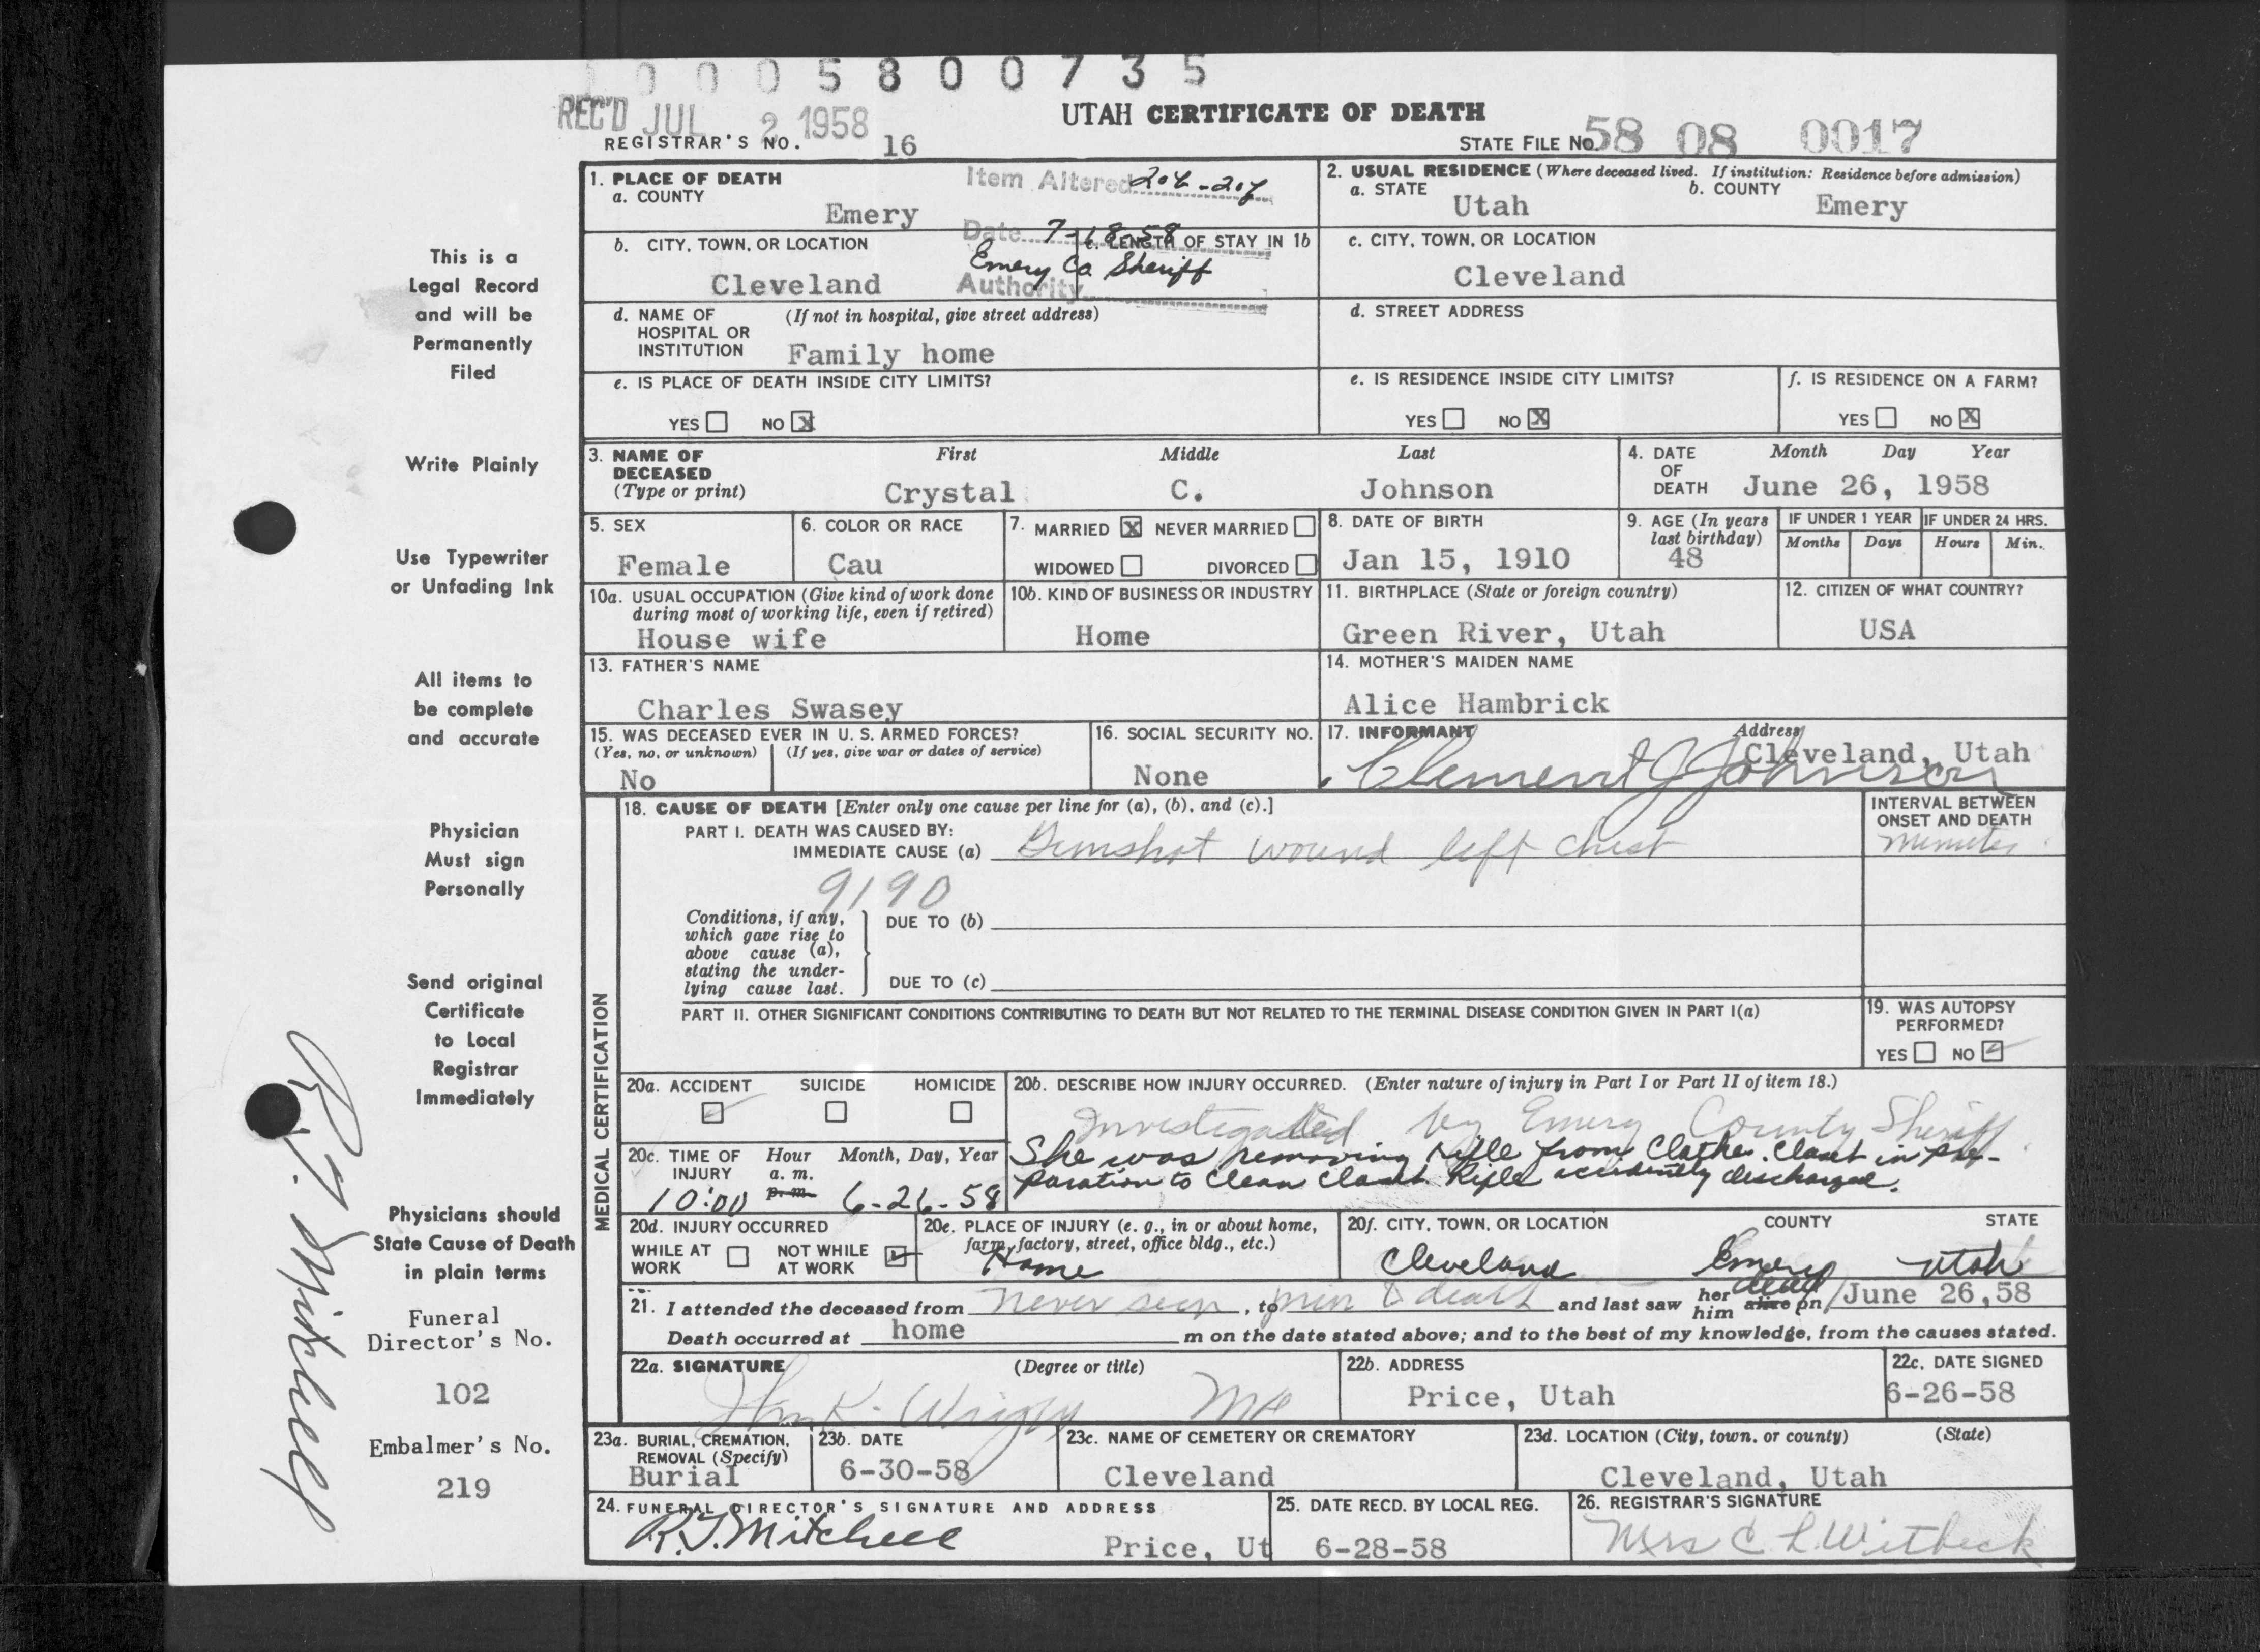 1 0 0 0 5 8 0 0 7 3 5
REC'D JUL 2 1958
UTAH CERTIFICATE OF DEATH
REGISTRAR'S NO. 16
STATE FILE No 58 08 0017
This is a
Legal Record
and will be
Permanently
Filed
Write Plainly
Use Typewriter
or Unfading Ink
All items to
be complete
and accurate
Physician
Must sign
Personally
Send original
Certificate
to Local
Registrar
Immediately
Physicians should
State Cause of Death
in plain terms
Funeral
Director's No.
102
Embalmer's No.
219
R.J. Mitchell
1. PLACE OF DEATH
a. COUNTY
Emery
Item Altered
Date 7-18-58
Emery Co Sheriff
Authority
2. USUAL RESIDENCE (Where deceased lived. If institution: Residence before admission)
a. STATE Utah
b. COUNTY Emery
b. CITY, TOWN, OR LOCATION
Cleveland
c. LENGTH OF STAY IN 1b
c. CITY, TOWN, OR LOCATION
Cleveland
d. NAME OF (If not in hospital, give street address)
HOSPITAL OR
INSTITUTION Family home
d. STREET ADDRESS
e. IS PLACE OF DEATH INSIDE CITY LIMITS?
YES NO X
e. IS RESIDENCE INSIDE CITY LIMITS?
YES NO X
f. IS RESIDENCE ON A FARM?
YES NO X
3. NAME OF First Middle Last
DECEASED
(Type or print) Crystal C. Johnson
4. DATE Month Day Year
OF
DEATH June 26, 1958
5. SEX
Female
6. COLOR OR RACE
Cau
7. MARRIED X NEVER MARRIED
WIDOWED DIVORCED
8. DATE OF BIRTH
Jan 15, 1910
9. AGE (In years
last birthday)
48
IF UNDER 1 YEAR
Months Days
IF UNDER 24 HRS.
Hours Min.
10a. USUAL OCCUPATION (Give kind of work done
during most of working life, even if retired)
House wife
10b. KIND OF BUSINESS OR INDUSTRY
Home
11. BIRTHPLACE (State or foreign country)
Green River, Utah
12. CITIZEN OF WHAT COUNTRY?
USA
13. FATHER'S NAME
Charles Swasey
14. MOTHER'S MAIDEN NAME
Alice Hambrick
15. WAS DECEASED EVER IN U. S. ARMED FORCES?
(Yes, no, or unknown) (If yes, give war or dates of service)
No
16. SOCIAL SECURITY NO.
None
17. INFORMANT Address
Cleveland, Utah
Clement J Johnson
MEDICAL CERTIFICATION
18. CAUSE OF DEATH [Enter only one cause per line for (a), (b), and (c).]
PART I. DEATH WAS CAUSED BY:
IMMEDIATE CAUSE (a) Gunshot wound left chest
INTERVAL BETWEEN
ONSET AND DEATH
minutes
9190
Conditions, if any,
which gave rise to
above cause (a),
stating the under-
lying cause last.
DUE TO (b)
DUE TO (c)
PART II. OTHER SIGNIFICANT CONDITIONS CONTRIBUTING TO DEATH BUT NOT RELATED TO THE TERMINAL DISEASE CONDITION GIVEN IN PART I(a)
19. WAS AUTOPSY
PERFORMED?
YES NO ✓
20a. ACCIDENT SUICIDE HOMICIDE
✓
20b. DESCRIBE HOW INJURY OCCURRED. (Enter nature of injury in Part I or Part II of item 18.)
Investigated by Emery County Sheriff
She was removing rifle from Clothes Closet in pre-
paration to Clean Closet. Rifle accidently discharged.
20c. TIME OF Hour Month, Day, Year
INJURY a. m.
10:00 p. m. 6-26-58
20d. INJURY OCCURRED
WHILE AT
WORK
NOT WHILE
AT WORK ✓
20e. PLACE OF INJURY (e. g., in or about home,
farm, factory, street, office bldg., etc.)
Home
20f. CITY, TOWN, OR LOCATION COUNTY STATE
Cleveland Emery Utah
21. I attended the deceased from never seen, to and last saw her him alive on dead June 26,58
Death occurred at home m on the date stated above; and to the best of my knowledge, from the causes stated.
22a. SIGNATURE (Degree or title)
K. MD
22b. ADDRESS
Price, Utah
22c. DATE SIGNED
6-26-58
23a. BURIAL, CREMATION,
REMOVAL (Specify)
Burial
23b. DATE
6-30-58
23c. NAME OF CEMETERY OR CREMATORY
Cleveland
23d. LOCATION (City, town, or county) (State)
Cleveland, Utah
24. FUNERAL DIRECTOR'S SIGNATURE AND ADDRESS
R.J. Mitchell Price, Ut
25. DATE RECD. BY LOCAL REG.
6-28-58
26. REGISTRAR'S SIGNATURE
Mrs C L Witbeck